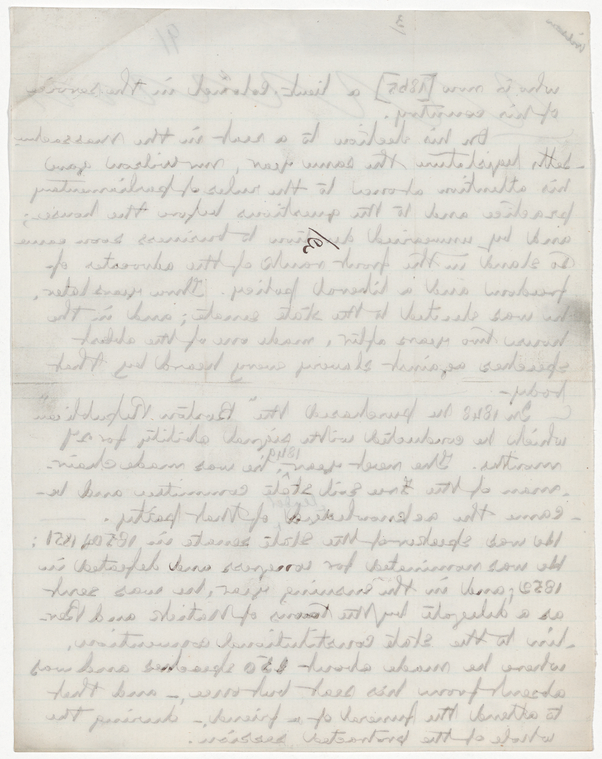 3
91
who is now [1865] a lieut. Colonel in the service
of his country.
On his election to a seat in the Massachu-
setts legislature the same year, Mr Wilson gave
his attention at once to the rules of parliamentary
practice and to the questions before the house;
and by unwearied attention to business soon came
to stand in the front rank of the advocates of
freedom and a liberal policy. Three years later,
he was elected to the state senate; and in the
house two years after, made one of the ablest
speeches against slavery every heard by that
body.
In 1848 he purchased the "Boston Republican"
which he conducted with signal ability for 27
months. The next year, 1849, he was made chair-
man of the free soil state committee and be-
came the acknowledged leader of that party.
He was speaker of the state senate in 1850 & 1851;
He was nominated for congress and defeated in
1852; and, in the ensuing year, he was sent
as a delegate by the towns of Natick and Ber-
lin to the state constitutional convention,
where he made about 150 speeches and was
absent from his seat but once, - and that
to attend the funeral of a friend, - during the
whole of the protracted session.